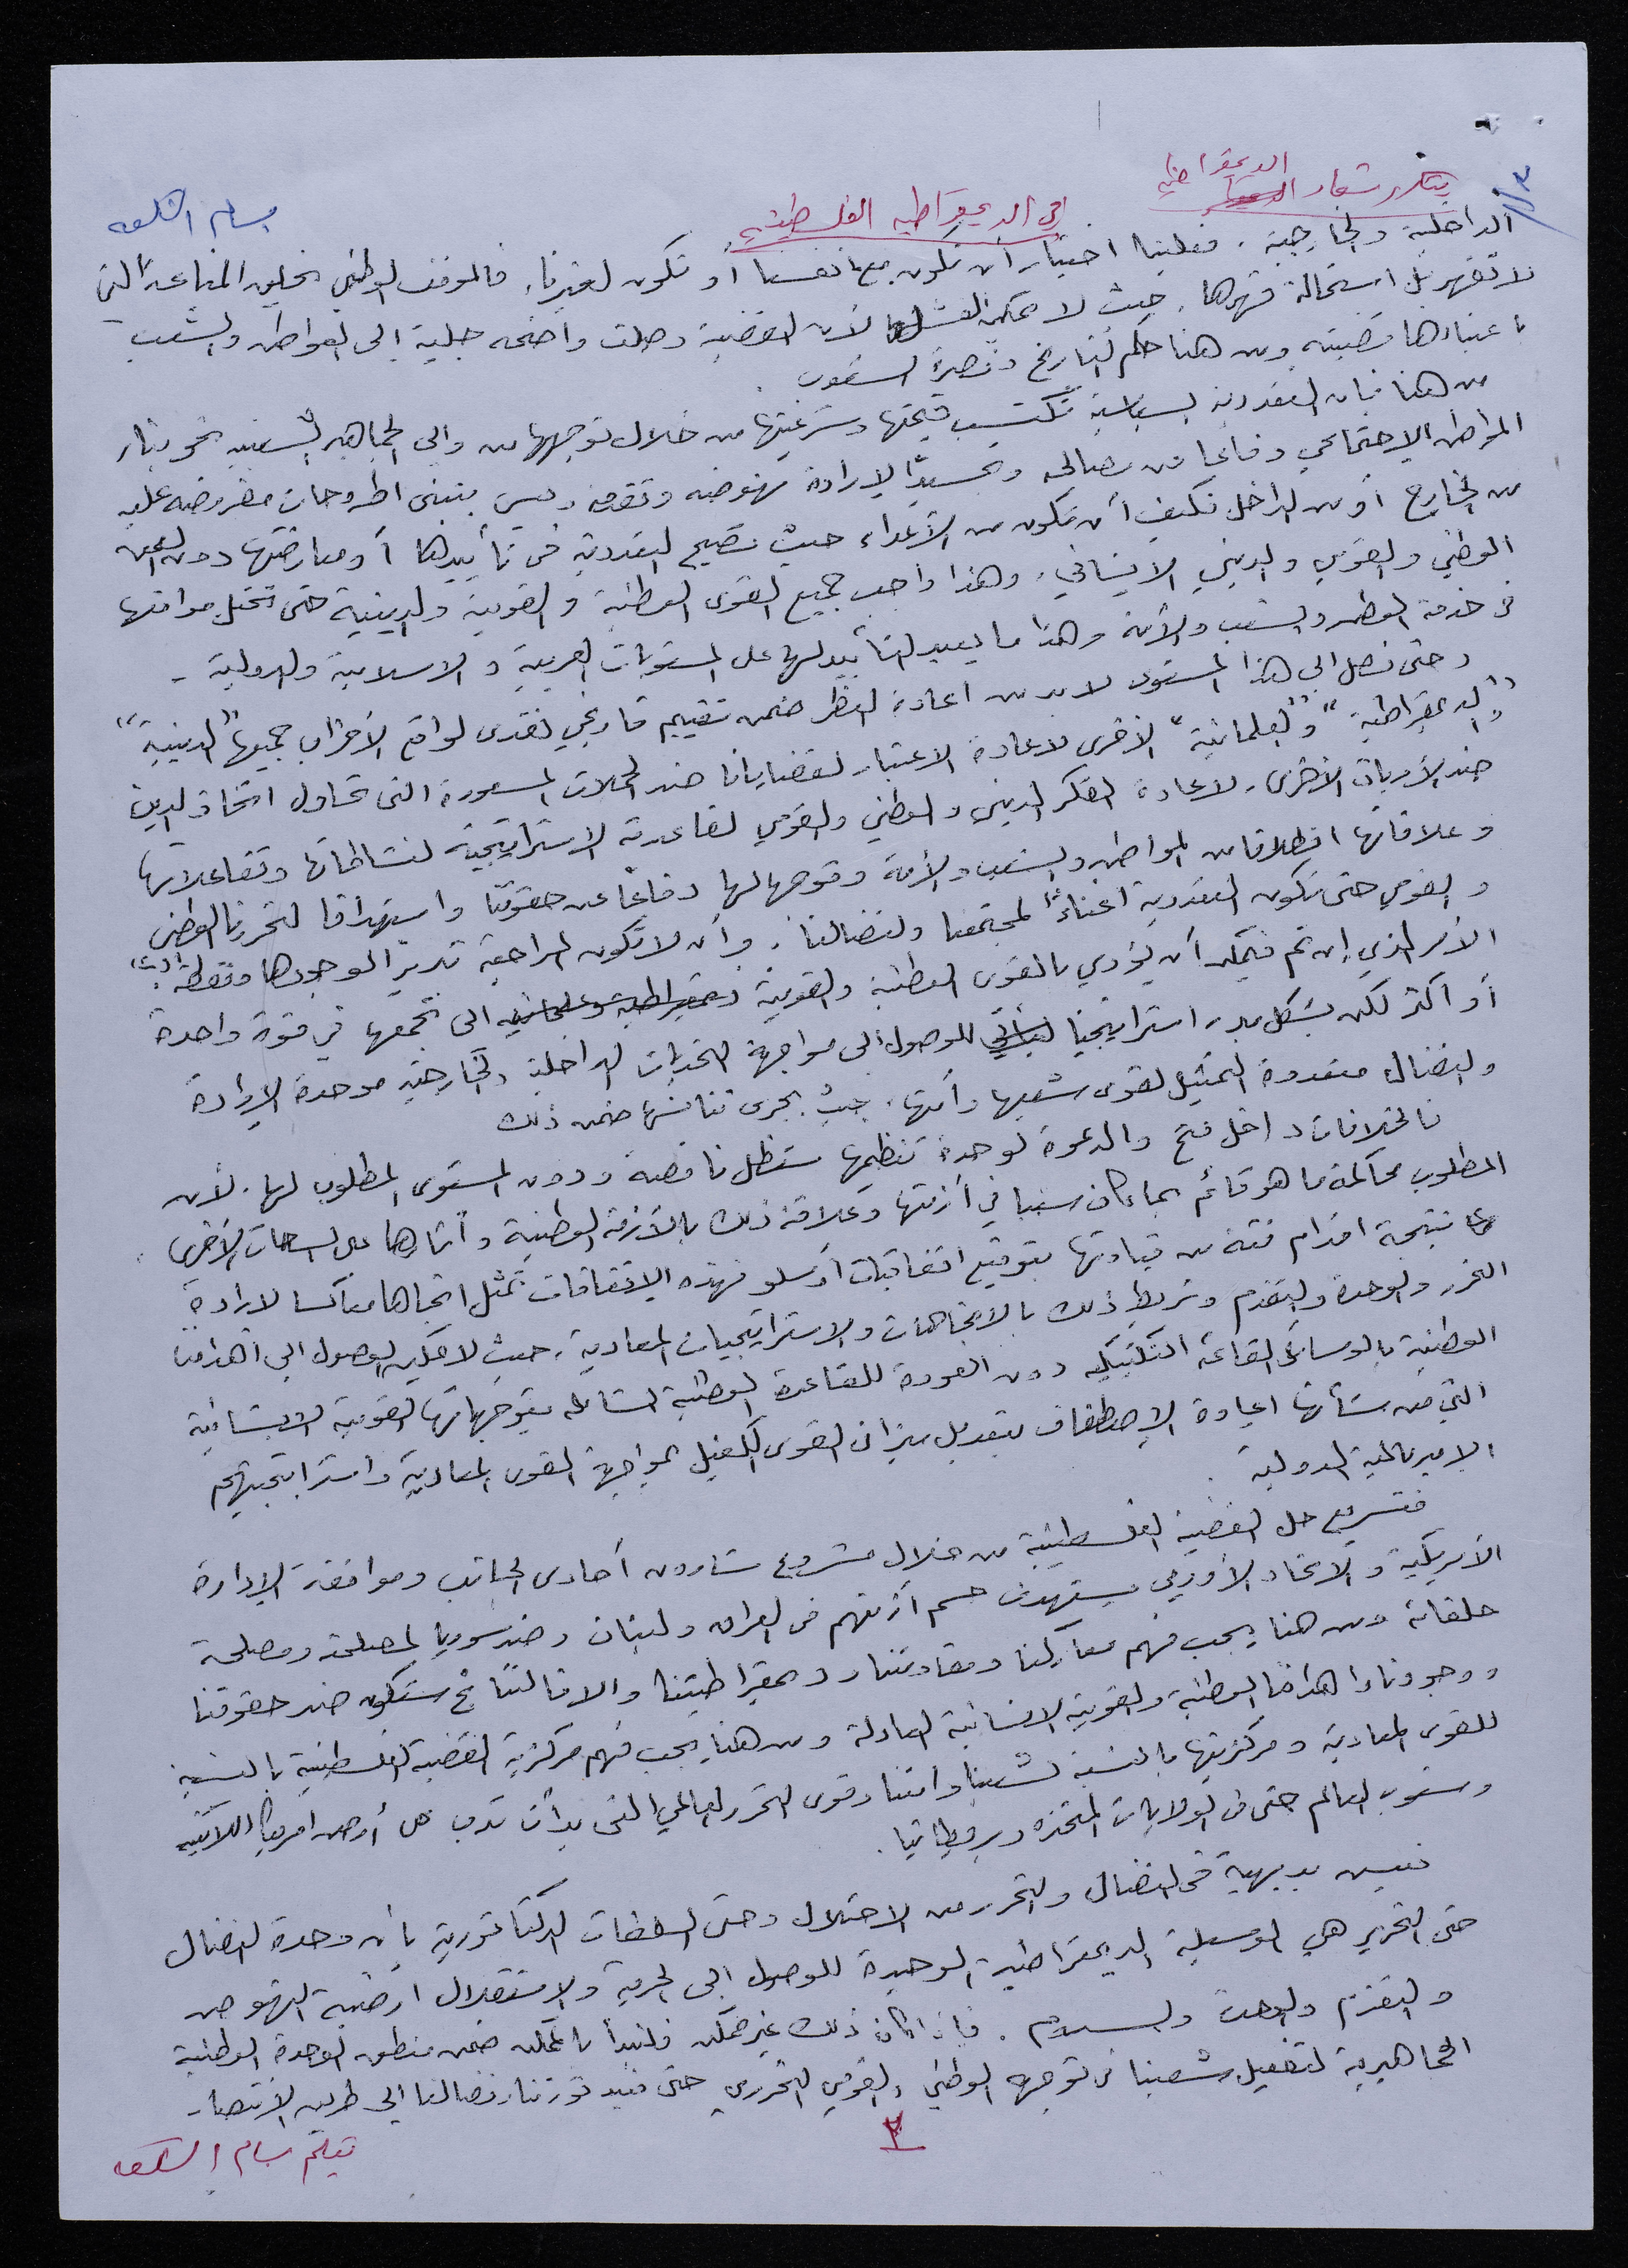 يتكرر شعار الديمقراطية
في الديمقراطية الفلسطينية
بسام الشكعة
الداخلية والخارجية. فعلينا اختيار أن نكون مع أنفسنا أو نكون لغيرنا. فالموقف الوطني يخلق المناعة التي
لا تقهر بل استحالة قهرها. حيث لا يمكن الفشل لأن القضية وصلت واضحة جلية إلى المواطن والشعب
باعتبارها قضيته ومن هنا حكم التاريخ ونصرة الشعوب.
من هنا فإن التعددية السياسية تكتسب قيمتها وشرعيتها من خلال توجهها من وإلى الجماهير الشعبية نحو بناء
المواطن الاجتماعي دفاعا عن مصالحه وتجسيدًا لإرادة نهوضه وتقدمه وليس بتبني اطروحات مفروضة عليه
من الخارج أو من الداخل فكيف أن تكون من الأعداء حيث تصبح التعددية في تأييدها أو معارضتها دون العمل
الوطني والقومي والديني الانساني. وهذا واجب جميع القوى الوطنية والقومية والدينية حتى تحتل مواقعها
في خدمة الوطن والشعب والأمة وهذا ما يعيد التأييد لها على المستويات العربية والاسلامية والدولية.
وحتى نصل إلى هذا المستوى لا بد من اعادة النظر ضمن تقييم تاريخي نقدي لواقع الأحزاب جميعها "الدينية"
و"الديمقراطية" و"العلمانية" الأخرى لاعادة الاعتبار لقضايانا ضد الحملات المسعورة التي تحاول اتخاذ الدين
ضد الأديان الأخرى. لاعادة الفكر الديني والوطني والقومي لقاعدته الاستراتيجية لنشاطاتها وتفاعلاتها
وعلاقاتها انطلاقا من المواطن والشعب والأمة وتوجهها لها دفاعًا عن حقوقنا واستهدافا لتحررنا الوطني
والقومي حتى تكون التعددية اغناءً لمجتمعنا ولنضالنا. وأن لا تكون المراجعة تبريرًا لوجودها ونقطة
الأمر الذي إن تم فيمكن أن يؤدي بالقوى الوطنية والقومية الى تجمعها في قوة واحدة
أو أكثر لكن بشكل مبدء استراتيجيا للوصول الى مواجهة التحديات الداخلية والخارجية موحدة الإرادة
والنضال متعددة التمثيل لقوى شعبها وأمتها. حيث يجري تنافسها ضمن ذلك
فالخلافات داخل فتح والدعوة لوحدة تنظيمها ستظل ناقصة ودون المستوى المطلوب لها. لأن
المطلوب محاكمة ما هو قائم بما كان سببا في أزمتها وعلاقة ذلك بالأزمة الوطنية وآثارها على الساحات الأخرى
نتيجة اقدام فئة من قيادتها بتوقيع اتفاقيات أوسلو فهذه الاتفاقات تمثل اتجاها معاكسا لإرادة
التحرر والوحدة والتقدم وتربط ذلك بالاتجاهات والاستراتيجيات المعادية. حيث لا يمكن الوصول الى أهدافنا
الوطنية بالوسائل القائمة التكتيكية دون العودة للقاعدة الوطنية الشاملة بتوجهاتها القومية الانسانية
التي من شأنها اعادة الاصطفاف بتعديل ميزان القوى الكفيل بمواجهة القوى المعادية واستراتيجيتهم
الامبريالية الدولية.
فتسريع حل القضية الفلسطينية من خلال مشروع شارون أحادي الجانب وموافقة الإدارة
الأمريكية والاتحاد الأوروبي يستهدف حسم أزمتهم في العراق ولبنان وضد سوريا لمصلحة ومصلحة
حلفائه ومن هنا يجب فهم معاركنا ومقاومتنا وديمقراطيتنا والا فالنتائج ستكون ضد حقوقنا
ووجودنا وأهدافنا الوطنية والقومية الانسانية العادلة ومن هنا يجب فهم مركزية القضية الفلسطينية بالنسبة
للقوى المعادية ومركزيتها بالنسبة لشعبنا وأمتنا وقوى التحرر العالمي التي بدأت تدب على أرض أمريكا اللاتينية
وشعوب العالم حتى في الولايات المتحدة وبريطانيا.
فليس بديهية في النضال والتحرر من الاحتلال وحتى السلطات الدكتاتورية بأن وحدة النضال
حتى التحرير هي الوسيلة الديمقراطية الوحيدة للوصول الى الحرية والاستقلال أرضية النهوض
والتقدم والوحدة والسلام. فإذا كان ذلك غير ممكن فلنبدأ بالممكن ضمن منطق الوحدة الوطنية
الجماهيرية لتفعيل شعبنا في توجهه الوطني والقومي التحرري حتى نعيد ثورتنا ونضالنا إلى طريق الانتصار.
٢
بقلم بسام الشكعة